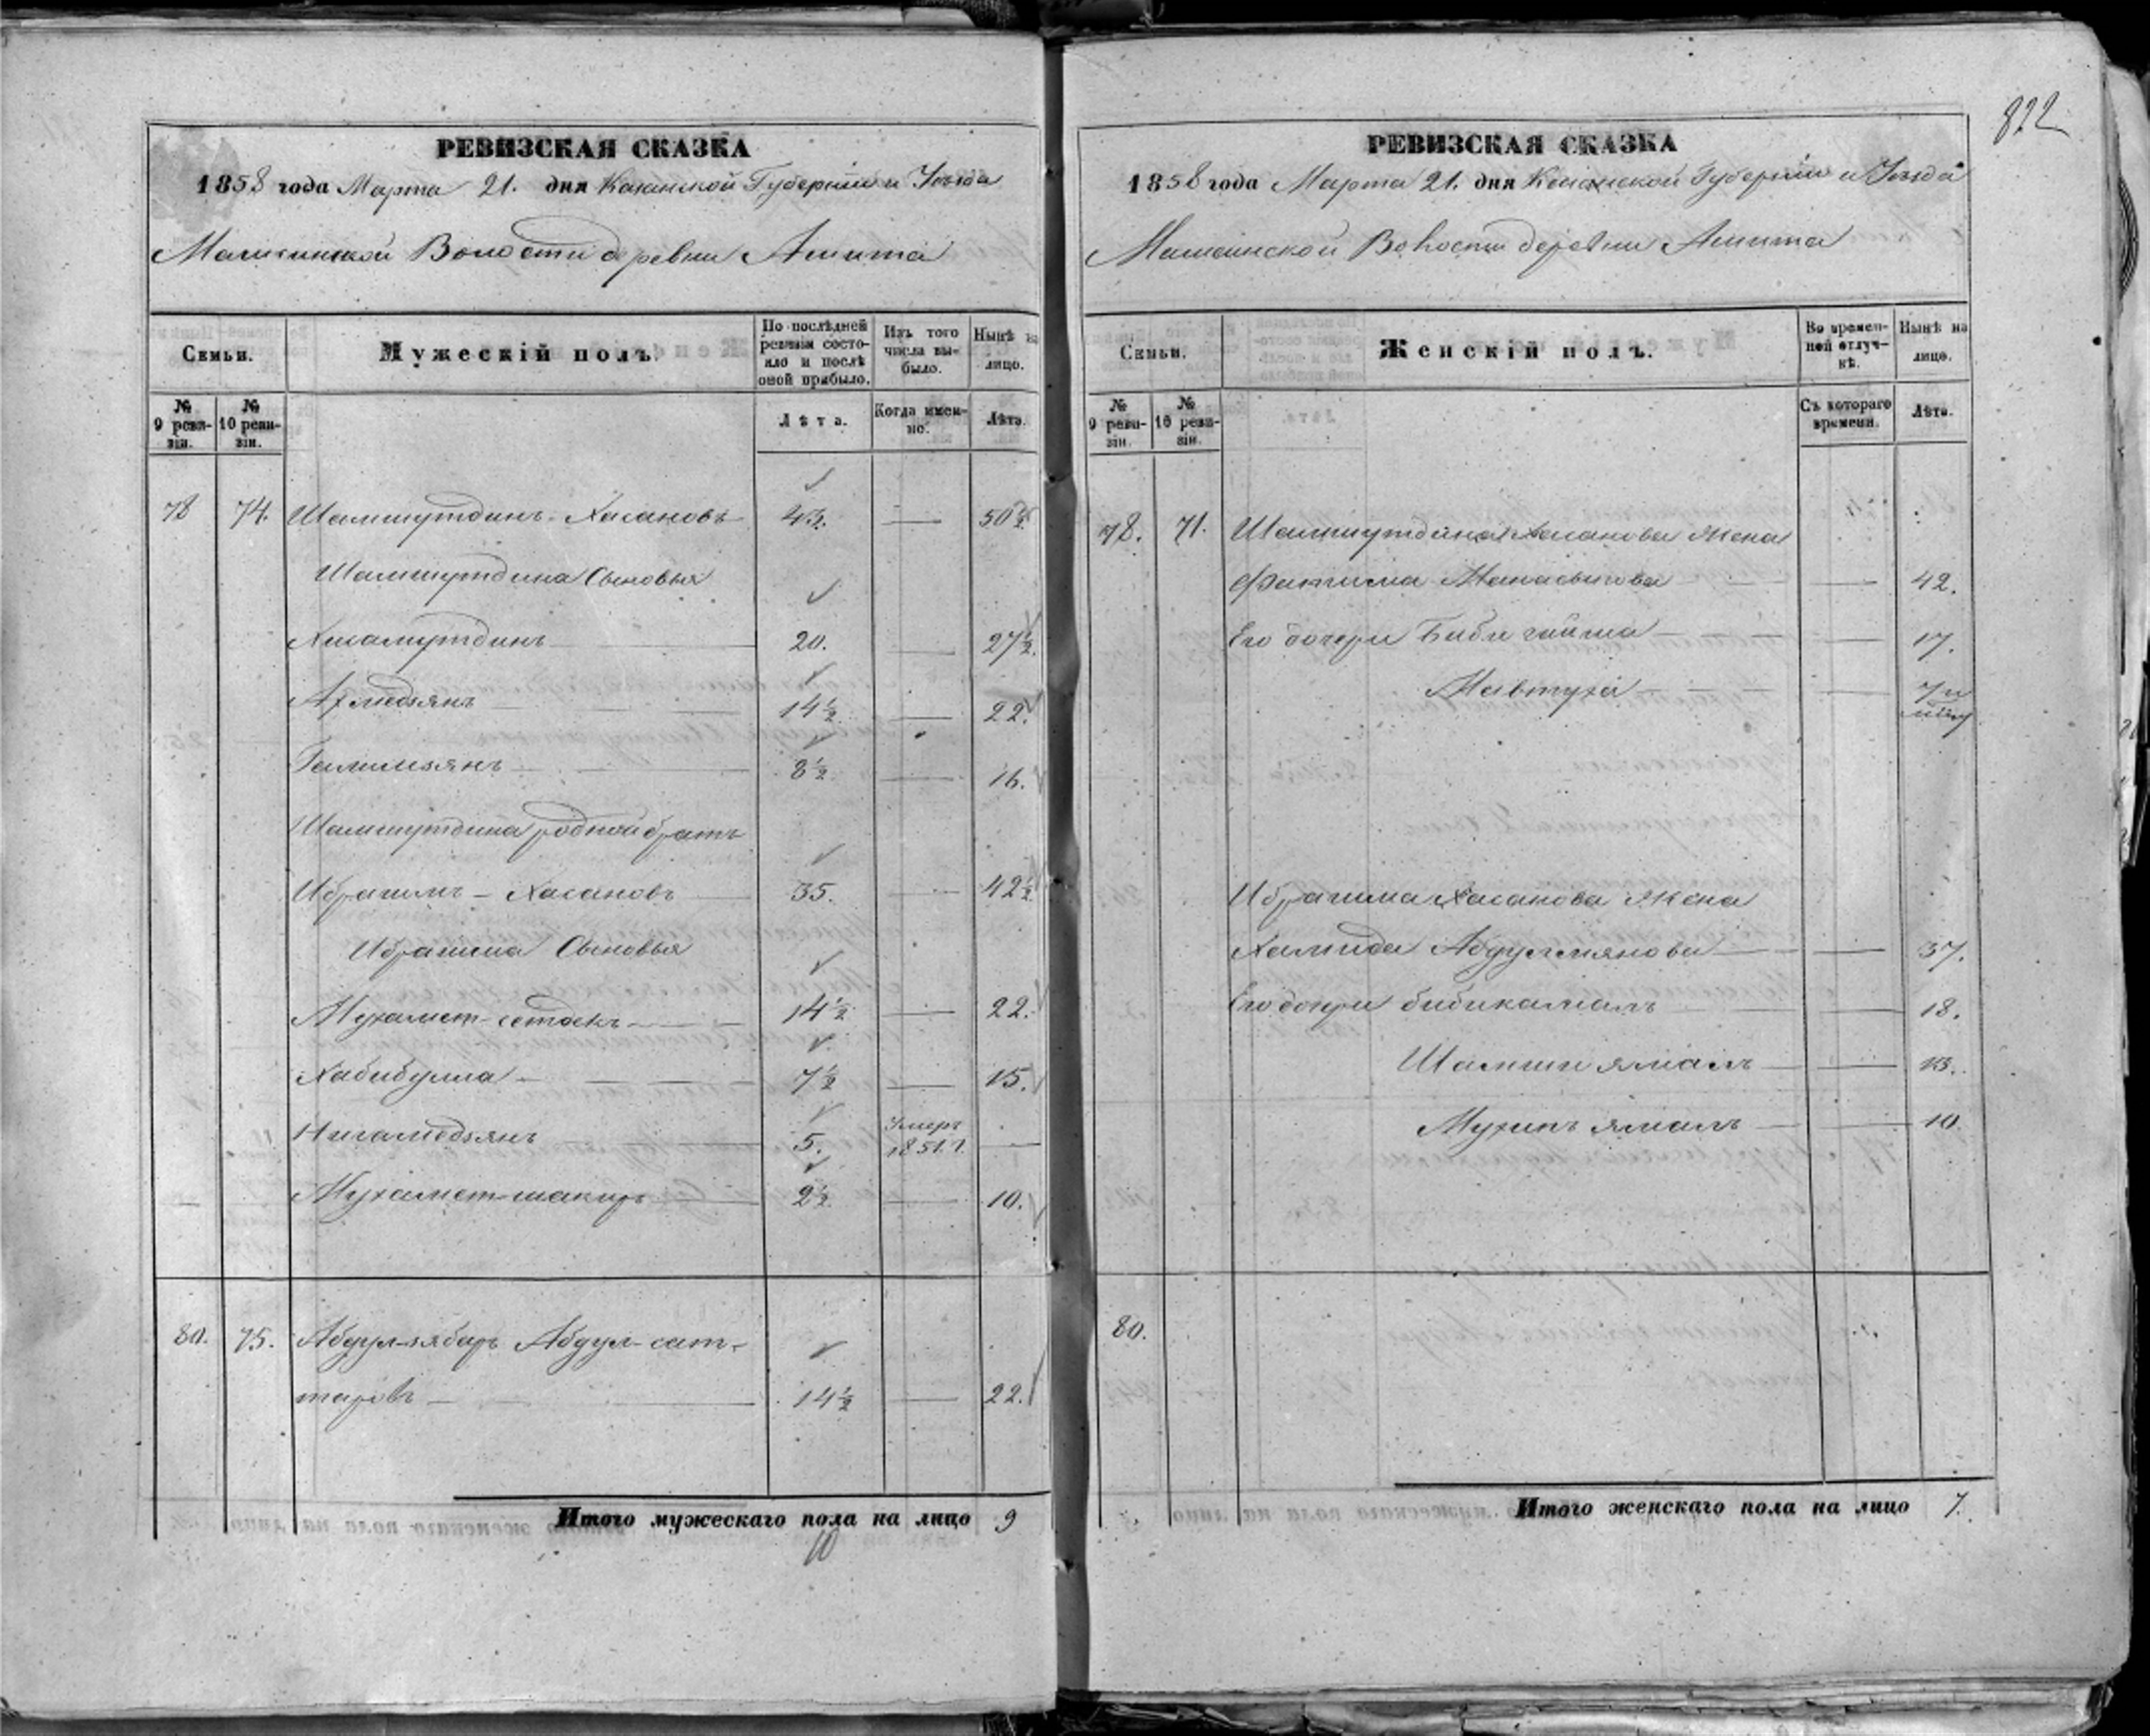 822
РЕВИЗСКАЯ СКАЗКА
1858 года Марта 21. дня Казанской Губерніи и Уезда
Волости деревни Ашита
Семьи.
Мужескій полъ.
По послѣдней ревизіи состояло и послѣ оной прибыло.
Изъ того числа выбыло.
Нынѣ на лицо.
№ 9 ревизіи.
№ 10 ревизіи.
Лѣта.
Когда именно.
Лѣта.
78 74. Шамшутдинъ Хасановъ 43. — 50½
Шамшутдина Сыновья
Хисамутдинъ 20. — 27½.
Ахмедзянъ 14½ — 22.
Галимзянъ 8½ — 16.
Шамшутдина родной братъ
Ибрагимъ - Хасановъ 35. — 42½
Ибрагима Сыновья
Мухамет- 14½ — 22.
Хабибулла 7½ — 15.
Нигамедзянъ 5. Умеръ 1851 г. —
Мухамет-шакиръ 2½ — 10.
80. 75. Абдул-зябаръ Абдул-сат-
таровъ 14½ — 22.
Итого мужескаго пола на лицо 9
10
РЕВИЗСКАЯ СКАЗКА
1858 года Марта 21. дня Казанской Губерніи и Уезда
Волости деревни Ашита
Семьи.
Женскій полъ.
Во временной отлучкѣ.
Нынѣ на лицо.
№ 9 ревизіи.
№ 10 ревизіи.
Съ котораго времени.
Лѣта.
78. 71. Шамшутдина Хасанова Жена
Фатима — 42.
Его дочери Биби — 17.
Мавтуха — 7
Ибрагима Хасанова Жена
Хамида — 37.
Его дочери бибикамалъ — 18.
Шамши ямалъ — 13.
ямалъ — 10
80.
Итого женскаго пола на лицо 7.